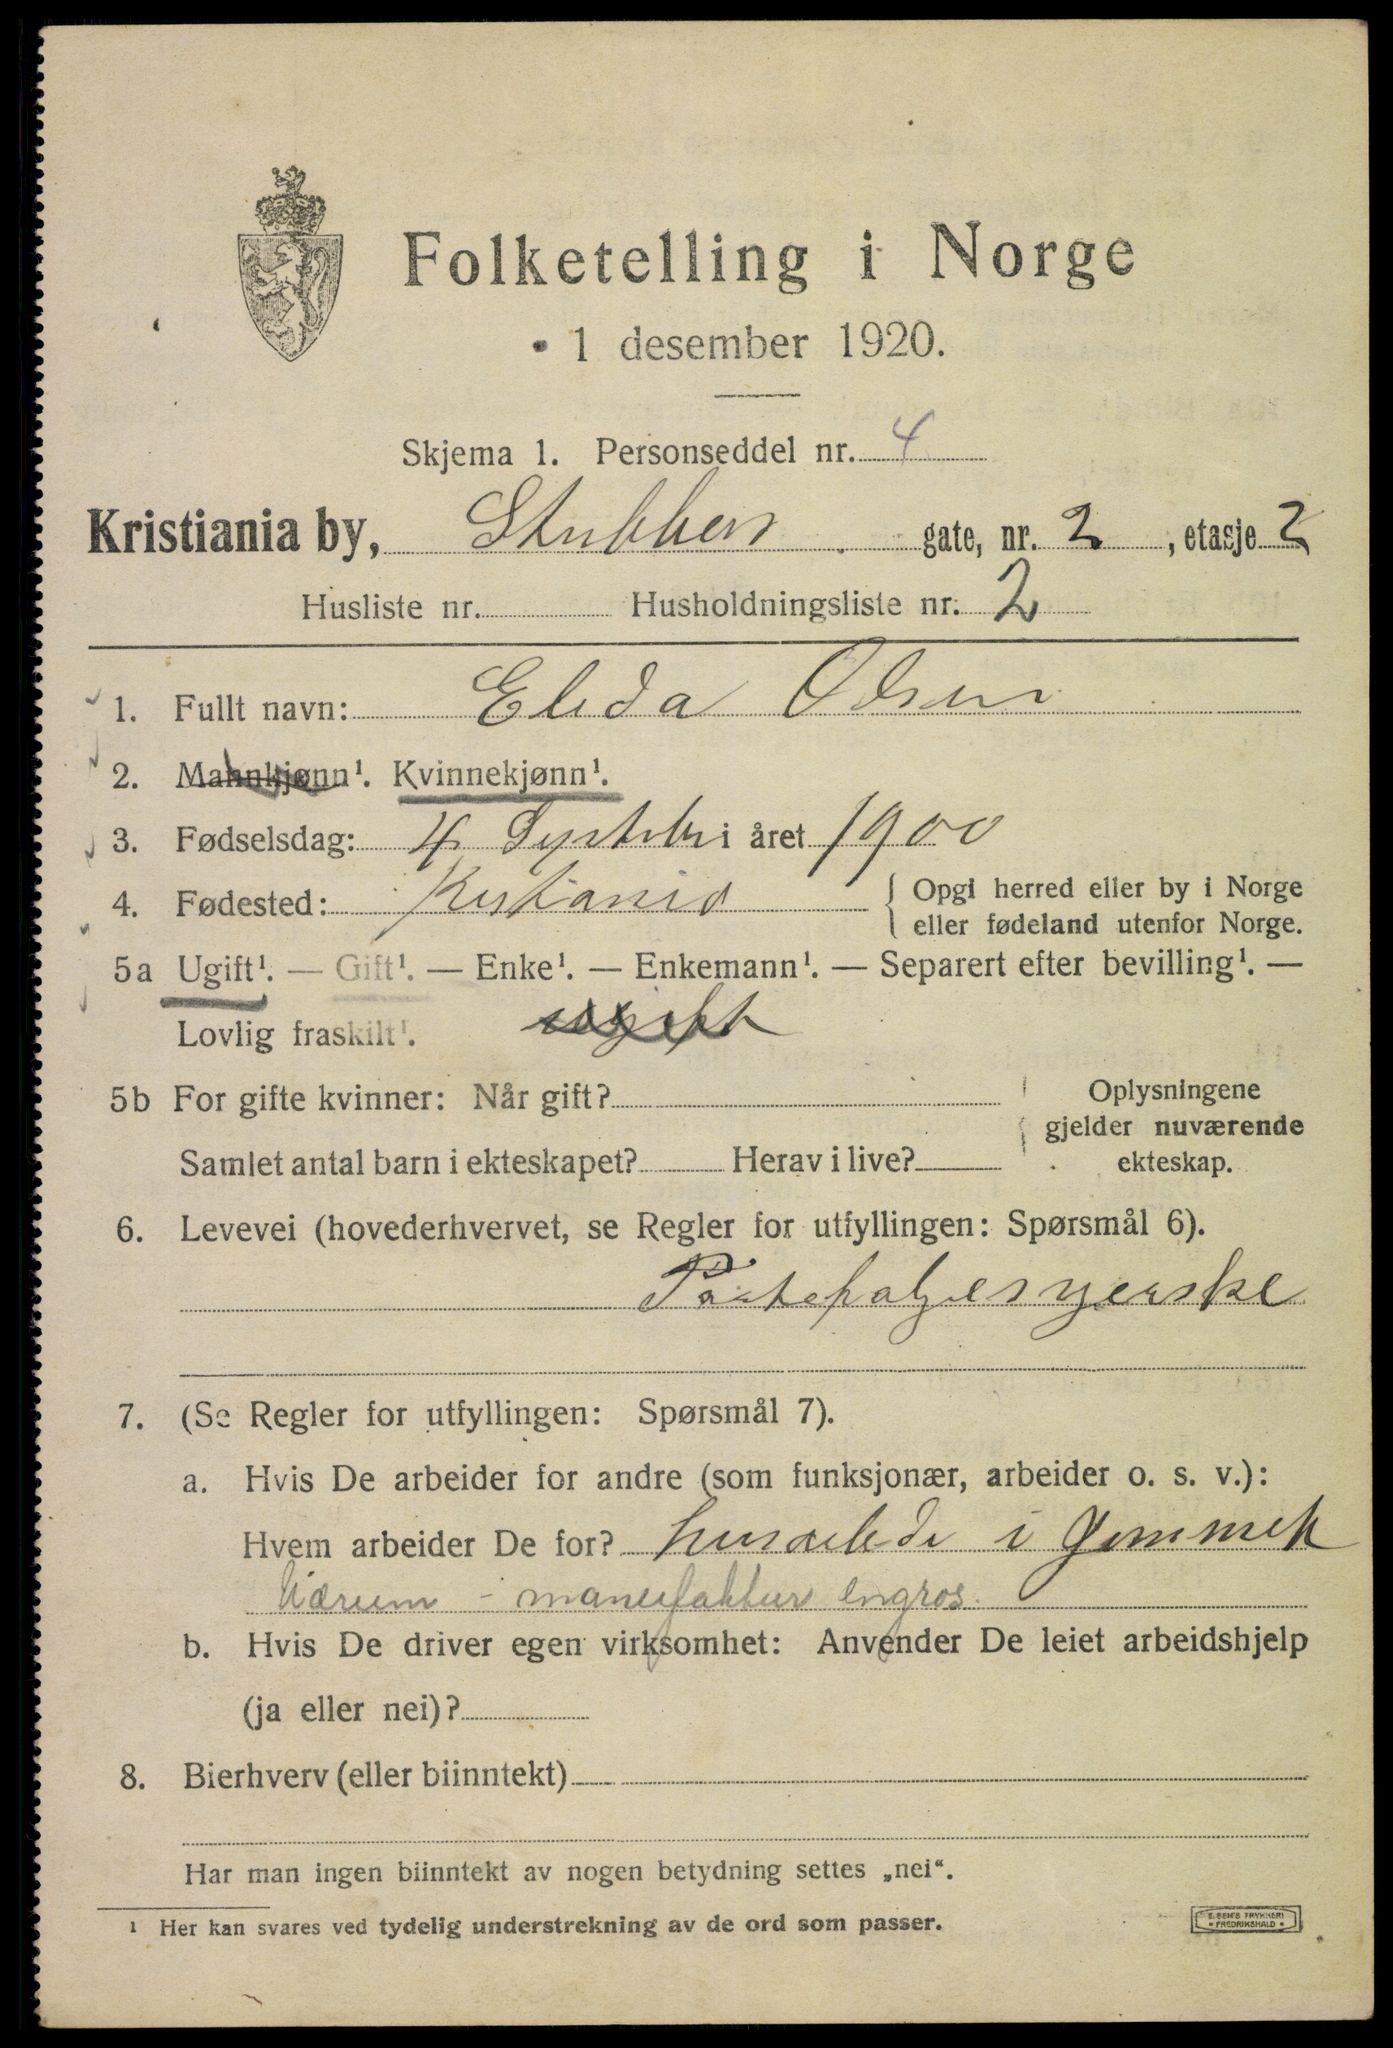 Folketelling i Norge
1 desember 1920.
Skjema 1. Personseddel nr. 4
Kristiania by, Stubbers gate, nr. 2, etasje 2
Husliste nr. Husholdningsliste nr. 2
1. Fullt navn: Elida Olsen
2. Mannkjønn¹. Kvinnekjønn¹.
3. Fødselsdag: 4 i året 1900
4. Fødested: Kristania { Opgi herred eller by i Norge
eller fødeland utenfor Norge.
5a Ugift¹. — Gift¹. — Enke¹. — Enkemann¹. — Separert efter bevilling¹. —
Lovlig fraskilt¹. ugift
5b For gifte kvinner: Når gift? Oplysningene
gjelder nuværende
Samlet antal barn i ekteskapet? Herav i live? ekteskap.
6. Levevei (hovederhvervet, se Regler for utfyllingen: Spørsmål 6).
7. (Se Regler for utfyllingen: Spørsmål 7).
a. Hvis De arbeider for andre (som funksjonær, arbeider o. s. v.):
Hvem arbeider De for? i
- manufaktur engros.
b. Hvis De driver egen virksomhet: Anvender De leiet arbeidshjelp
(ja eller nei)?
8. Bierhverv (eller biinntekt)
Har man ingen biinntekt av nogen betydning settes „nei“.
¹ Her kan svares ved tydelig understrekning av de ord som passer.
E. SEM'S TRYKKERI
FREDRIKSHALD